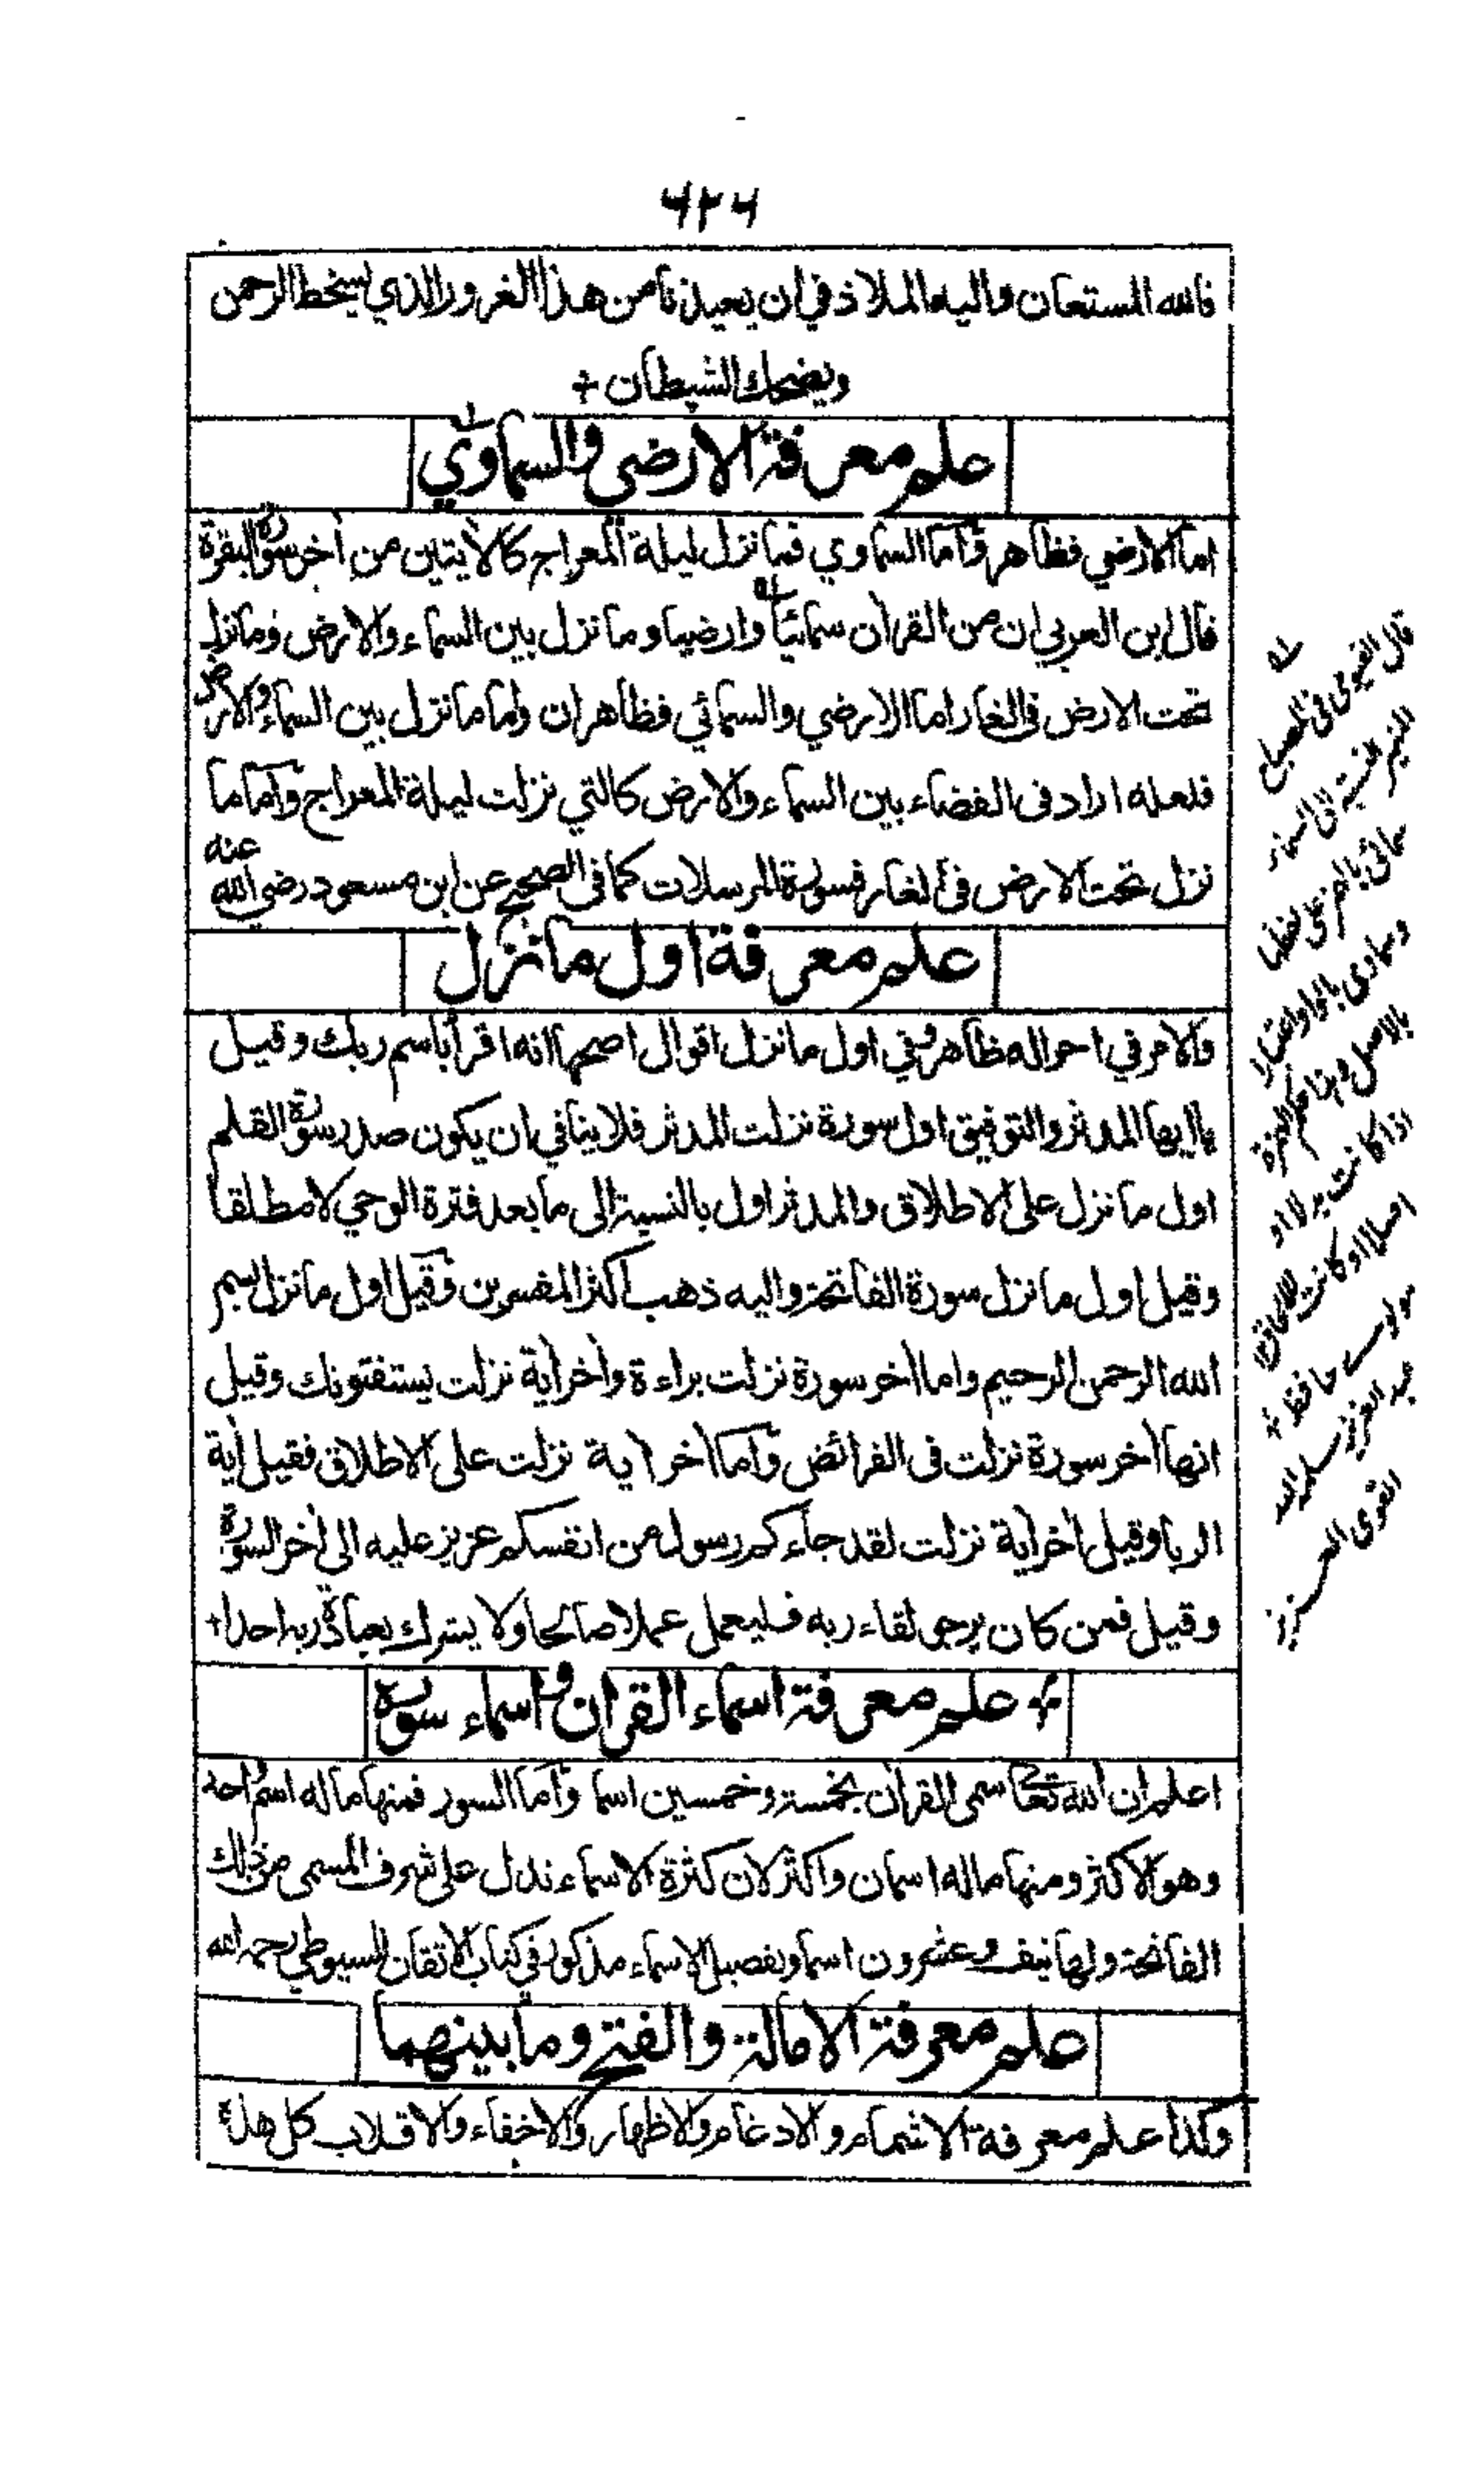 ٦٢٦
فالله المستعان واليه الملاذ في ان يعيذنا من هذا الغرور الذي يسخط الرحمن
ويضحك الشيطان +
علم معرفة الارضي والسماوي
اما الارضي فظاهر واما السماوي فما نزل ليلة المعراج كالآيتين من آخر سورة البقرة
قال ابن العربي ان من القرآن سمائيا وارضيا وما نزل بين السماء والارض وما نزل
تحت الارض في الغار اما الارضي والسمائي فظاهران واما ما نزل بين السماء والارض
فلعله اراد في الفضاء بين السماء والارض كالتي نزلت ليلة المعراج واما ما
نزل تحت الارض في الغار فسورة المرسلات كما في الصحيح عن ابن مسعود رضي الله عنه
علم معرفة اول ما نزل
والامر في احواله ظاهر وفي اول ما نزل اقوال اصحها انه اقرأ باسم ربك وقيل
يا ايها المدثر والتوفيق اول سورة نزلت المدثر فلا ينافي ان يكون صدر سورة القلم
اول ما نزل على الاطلاق والمدثر اول بالنسبة الى ما بعد فترة الوحي لا مطلقا
وقيل اول ما نزل سورة الفاتحة واليه ذهب اكثر المفسرين وقيل اول ما نزل بسم
الله الرحمن الرحيم واما آخر سورة نزلت براءة وآخر آية نزلت يستفتونك وقيل
انها آخر سورة نزلت في الفرائض واما آخر آية نزلت على الاطلاق فقيل آية
الربا وقيل آخر آية نزلت لقد جاءكم رسول من انفسكم عزيز عليه الى آخر السورة
وقيل فمن كان يرجى لقاء ربه فليعمل عملا صالحا ولا يشرك بعبادة ربه احدا +
+ علم معرفة اسماء القرآن واسماء سوره
اعلم ان الله تعالى سمى القرآن بخمسة وخمسين اسما واما السور فمنها ما له اسم واحد
وهو الاكثر ومنها ما له اسمان واكثر لان كثرة الاسماء تدل على شرف المسمى من ذلك
الفاتحة ولها نيف وعشرون اسما وتفصيل الاسماء مذكور في كتاب الاتقان للسيوطي رحمه الله
علم معرفة الامالة والفتح وما بينهما
وكذا علم معرفة الاشمام والادغام والاظهار والاخفاء والاقلاب كل هذا
قال الفيومي في المصباح
النسبة الى السماء
سمائي بالهمز على لفظها
وسماوي بالواو اعتبارا
بالاصل وهذا حكم الهمزة
اذا كانت بدلا او
اصلا او كانت للالحاق